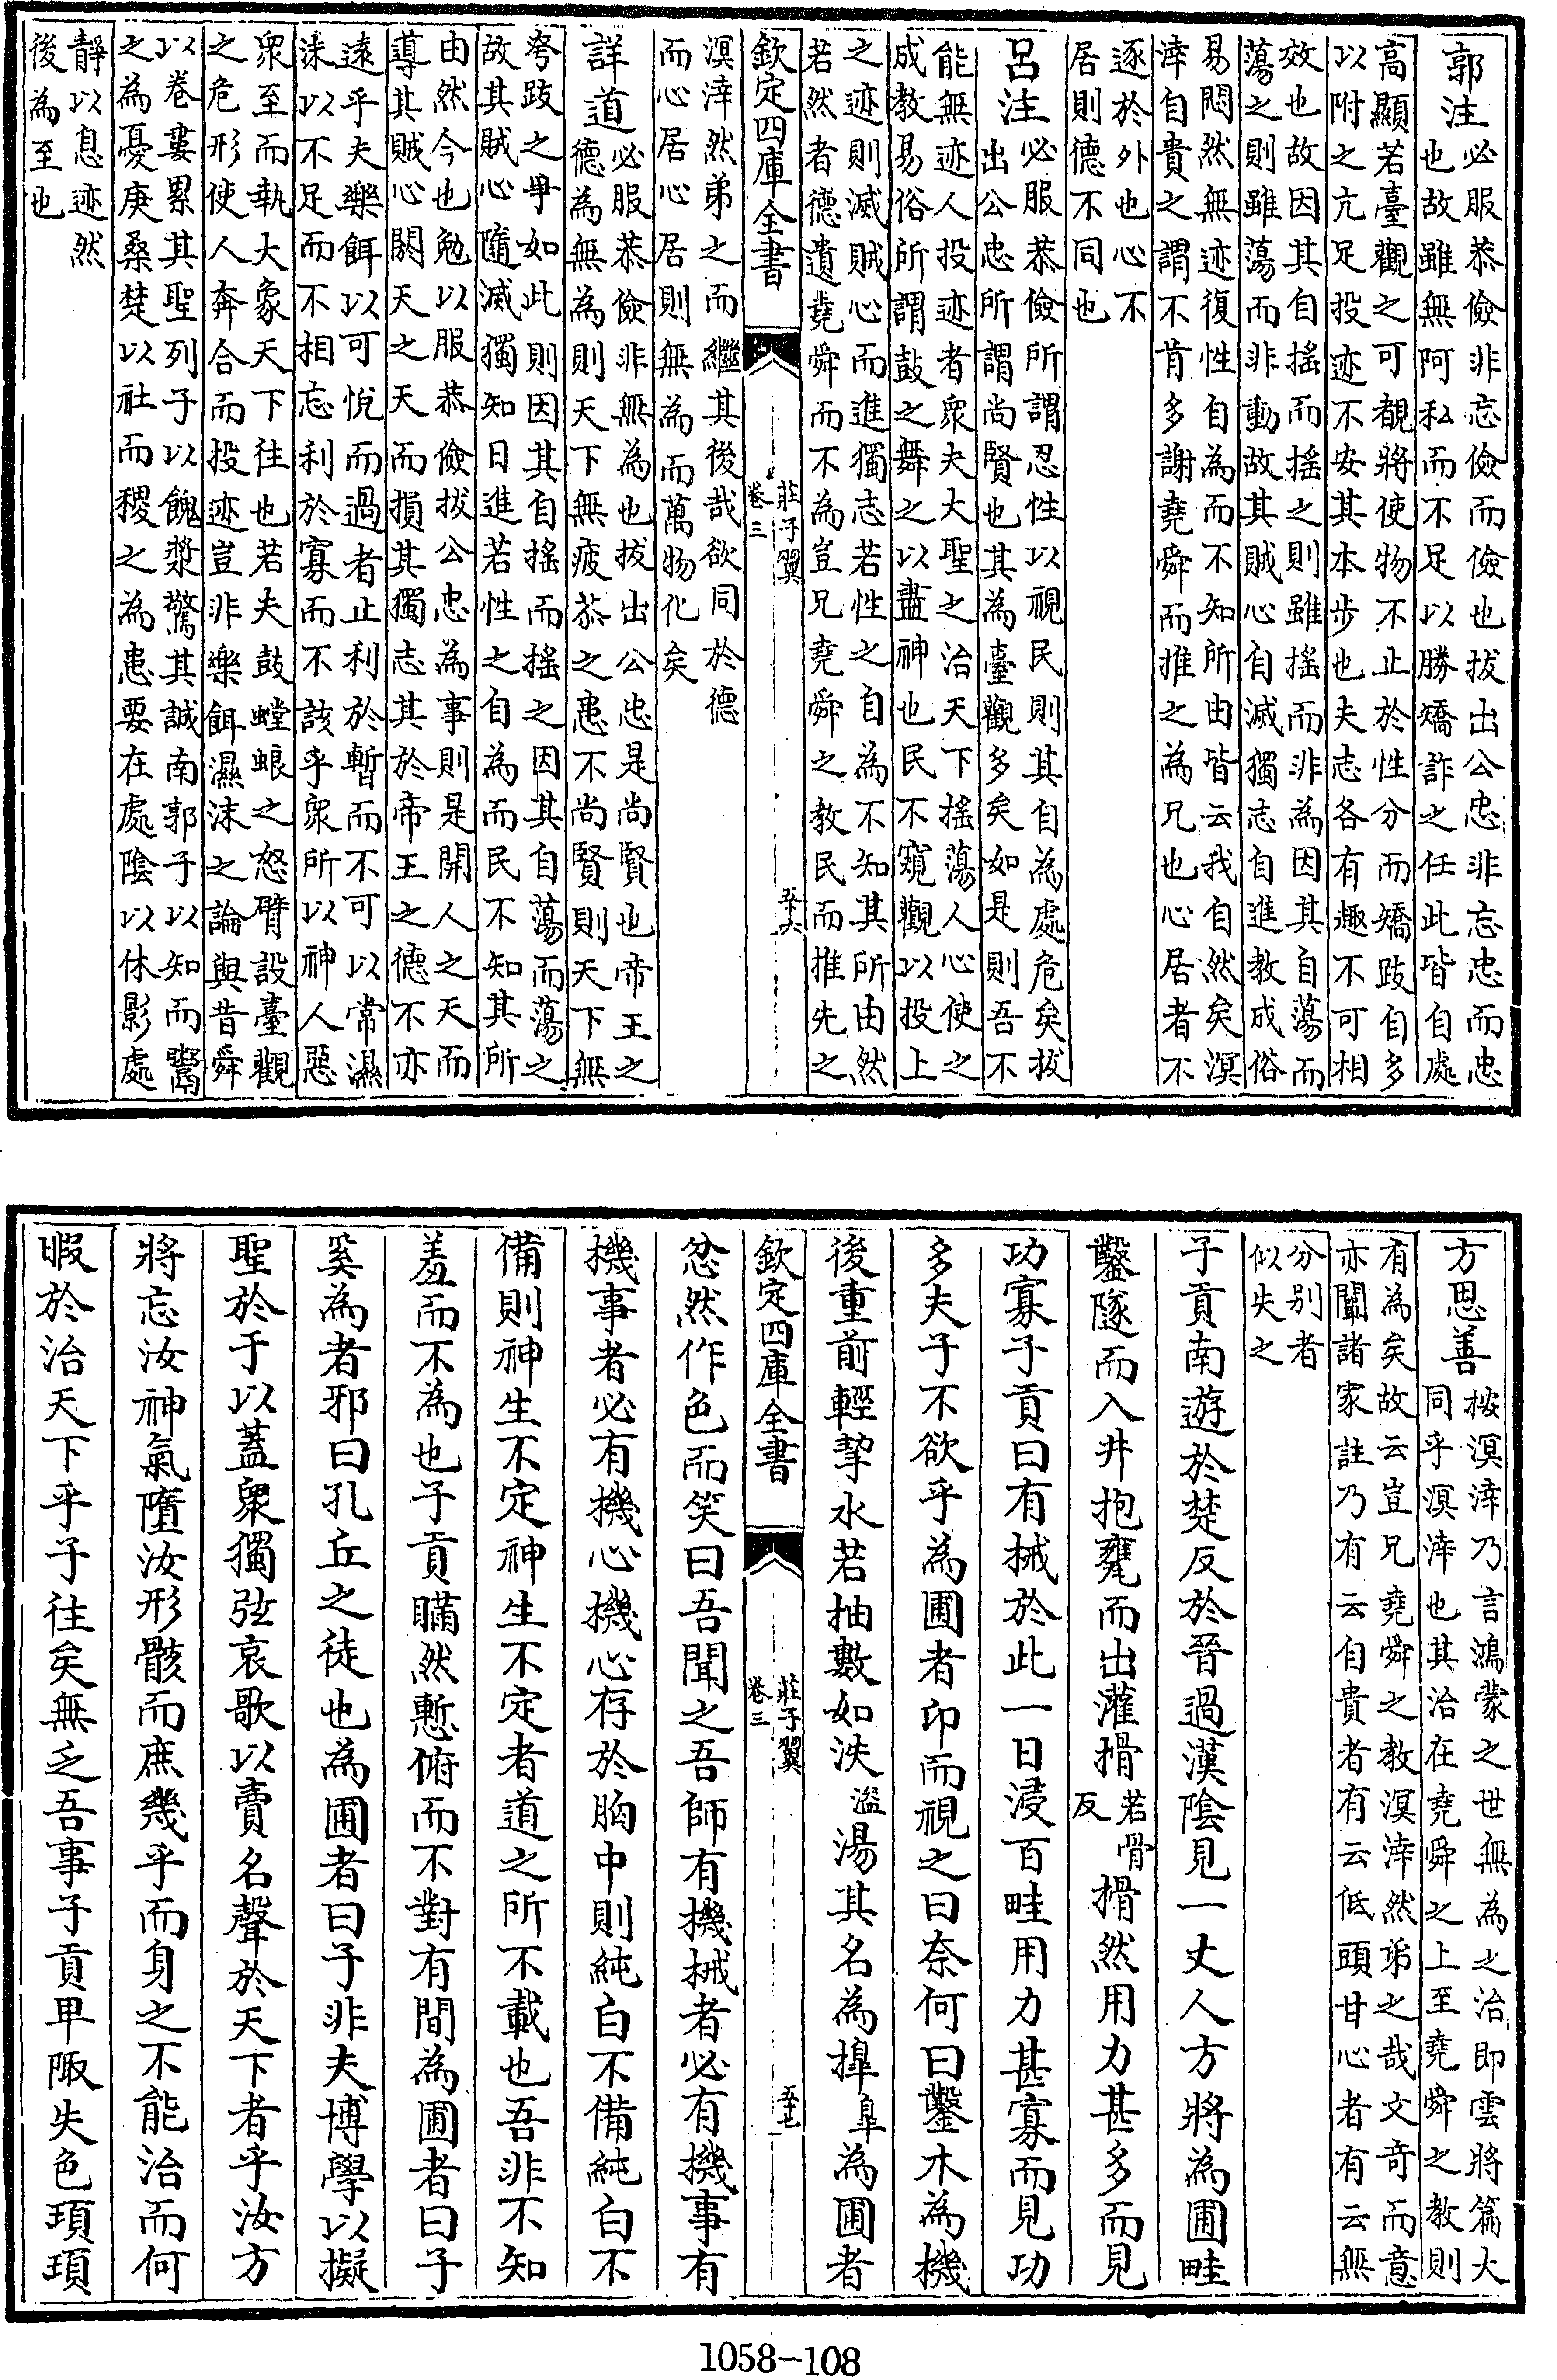 郭注必服恭儉非忘儉而儉也拔出公忠非忘忠而忠
也故雖無阿私而不足以勝矯詐之任此皆自處
高顯若臺觀之可覩將使物不止於性分而矯跂自多
以附之亢足投迹不安其本步也夫志各有趣不可相
效也故因其自搖而搖之則雖搖而非為因其自蕩而
蕩之則雖蕩而非動故其賊心自滅獨志自進教成俗
易悶然無迹復性自為而不知所由皆云我自然矣溟
涬自貴之謂不肯多謝堯舜而推之為兄也心居者不
逐於外也心不
居則德不同也
呂注必服恭儉所謂忍性以視民則其自為處危矣拔
出公忠所謂尚賢也其為臺觀多矣如是則吾不
能無迹人投迹者衆夫大聖之治天下搖蕩人心使之
成教易俗所謂鼓之舞之以盡神也民不窺觀以投上
之迹則滅賊心而進獨志若性之自為不知其所由然
若然者德遺堯舜而不為豈兄堯舜之教民而推先之
欽定四庫全書
莊子翼
卷三
五十六
溟涬然弟之而繼其後哉欲同於德
而心居心居則無為而萬物化矣
詳道必服恭儉非無為也拔出公忠是尚賢也帝王之
德為無為則天下無疲苶之患不尚賢則天下無
夸跂之爭如此則因其自搖而搖之因其自蕩而蕩之
故其賊心隨滅獨知日進若性之自為而民不知其所
由然今也勉以服恭儉拔公忠為事則是開人之天而
導其賊心閼天之天而損其獨志其於帝王之德不亦
遠乎夫樂餌以可悅而過者止利於暫而不可以常濕
沫以不足而不相忘利於寡而不該乎衆所以神人惡
衆至而執大象天下往也若夫鼓螳蜋之怒臂設臺觀
之危形使人奔合而投迹豈非樂餌濕沫之論與昔舜
以卷婁累其聖列子以餽漿驚其誠南郭子以知而鬻
之為憂庚桑楚以社而稷之為患要在處陰以休影處
靜以息迹然
後為至也
方思善按溟涬乃言鴻蒙之世無為之治即雲將篇大
同乎溟涬也其治在堯舜之上至堯舜之教則
有為矣故云豈兄堯舜之教溟涬然弟之哉文奇而意
亦闡諸家註乃有云自貴者有云低頭甘心者有云無
分別者
似失之
子貢南遊於楚反於晉過漢陰見一丈人方將為圃畦
鑿隧而入井抱甕而出灌搰若骨反搰然用力甚多而見
功寡子貢曰有械於此一日浸百畦用力甚寡而見功
多夫子不欲乎為圃者卬而視之曰奈何曰鑿木為機
後重前輕挈水若抽數如泆溢湯其名為槹臯為圃者
欽定四庫全書
莊子翼
卷三
五十七
忿然作色而笑曰吾聞之吾師有機械者必有機事有
機事者必有機心機心存於胸中則純白不備純白不
備則神生不定神生不定者道之所不載也吾非不知
羞而不為也子貢瞞然慙俯而不對有間為圃者曰子
奚為者邪曰孔丘之徒也為圃者曰子非夫博學以擬
聖於于以蓋衆獨弦哀歌以賣名聲於天下者乎汝方
將忘汝神氣墮汝形骸而庶幾乎而身之不能治而何
暇於治天下乎子往矣無乏吾事子貢卑陬失色頊頊
1058-108